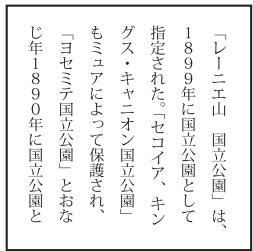 「レーニエ山　国立公園」は、
１８９９年に国立公園として
指定された。「セコイア、キン
グス・キャニオン国立公園」
もミュアによって保護され、
「ヨセミテ国立公園」とおな
じ年１８９０年に国立公園と